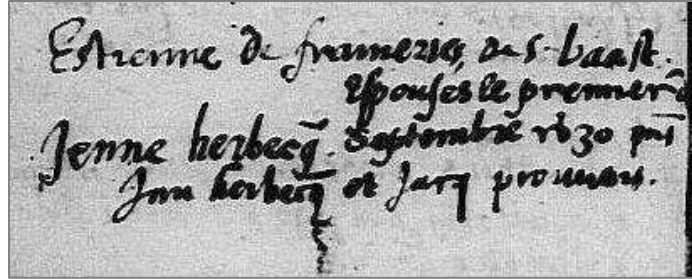 Estienne de frameries, de s. baast.
Espouses le premier
Jenne herbecq. Septembre 1630 pnt
Jan herbecq et Jacq prouuaus.